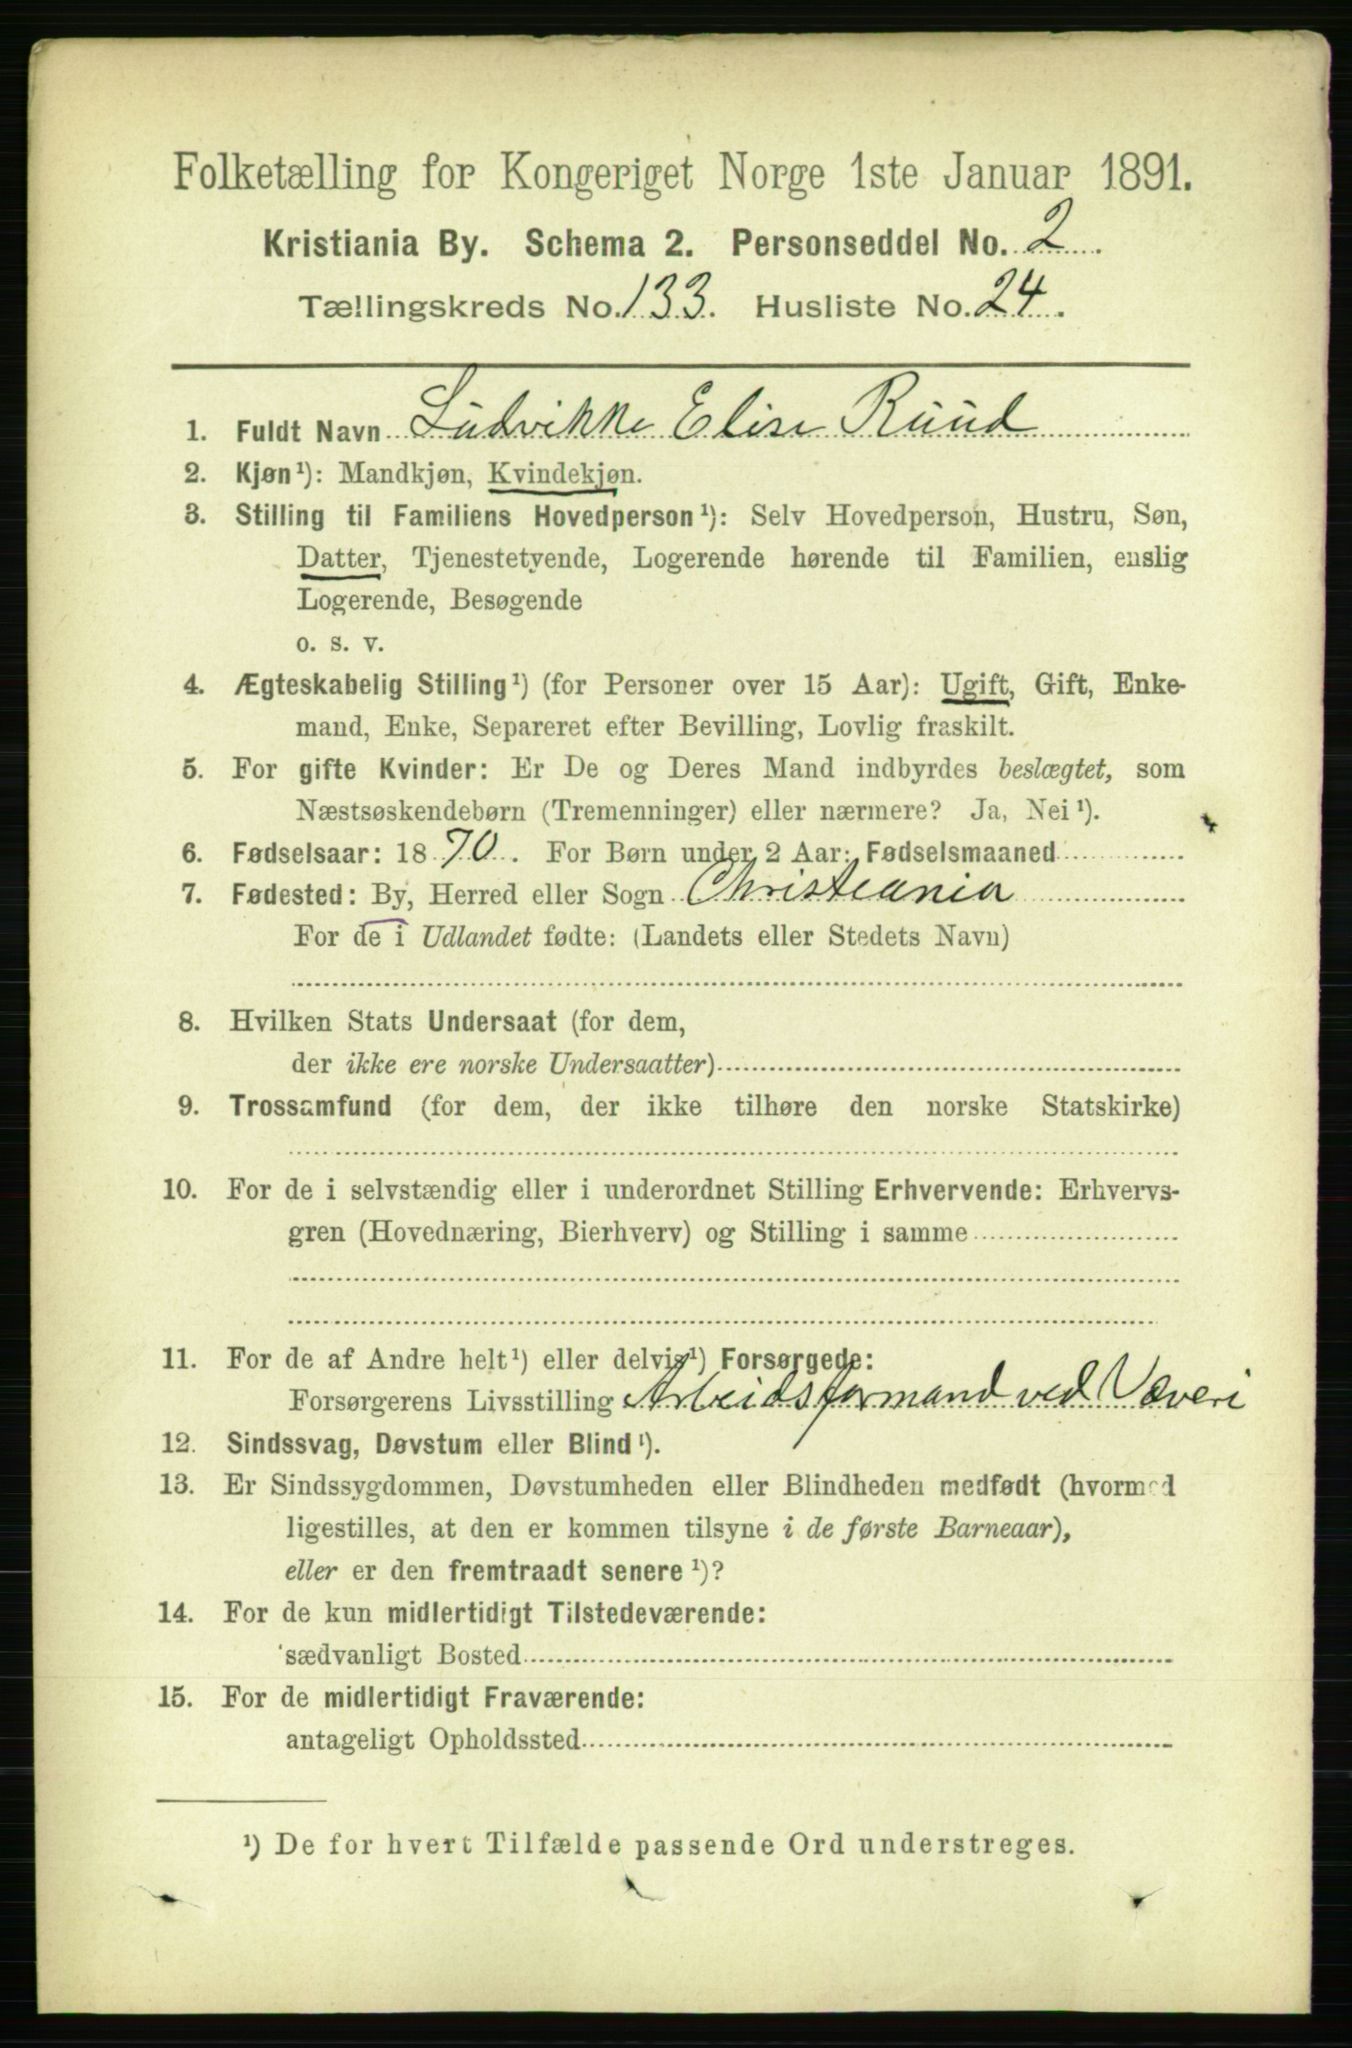 Folketælling for Kongeriget Norge 1ste Januar 1891.
Kristiania By. Schema 2. Personseddel No. 2.
Tællingskreds No. 133. Husliste No. 24.
1. Fuldt Navn Ludvikke Elise Ruud
2. Kjøn¹): Mandkjøn, Kvindekjøn.
3. Stilling til Familiens Hovedperson¹): Selv Hovedperson, Hustru, Søn,
Datter, Tjenestetyende, Logerende hørende til Familien, enslig
Logerende, Besøgende
o. s. v.
4. Ægteskabelig Stilling¹) (for Personer over 15 Aar): Ugift, Gift, Enke-
mand, Enke, Separeret efter Bevilling, Lovlig fraskilt.
5. For gifte Kvinder: Er De og Deres Mand indbyrdes beslægtet, som
Næstsøskendebørn (Tremenninger) eller nærmere? Ja, Nei¹).
6. Fødselsaar: 1870. For Børn under 2 Aar: Fødselsmaaned
7. Fødested: By, Herred eller Sogn Christiania
For de i Udlandet fødte: (Landets eller Stedets Navn)
8. Hvilken Stats Undersaat (for dem,
der ikke ere norske Undersaatter)
9. Trossamfund (for dem, der ikke tilhøre den norske Statskirke)
10. For de i selvstændig eller i underordnet Stilling Erhvervende: Erhvervs-
gren (Hovednæring, Bierhverv) og Stilling i samme
11. For de af Andre helt¹) eller delvis¹) Forsørgede:
Forsørgerens Livsstilling Arbeidsformand ved Væveri
12. Sindssvag, Døvstum eller Blind¹).
13. Er Sindssygdommen, Døvstumheden eller Blindheden medfødt (hvormed
ligestilles, at den er kommen tilsyne i de første Barneaar),
eller er den fremtraadt senere¹)?
14. For de kun midlertidigt Tilstedeværende:
sædvanligt Bosted
15. For de midlertidigt Fraværende:
antageligt Opholdssted
¹) De for hvert Tilfælde passende Ord understreges.